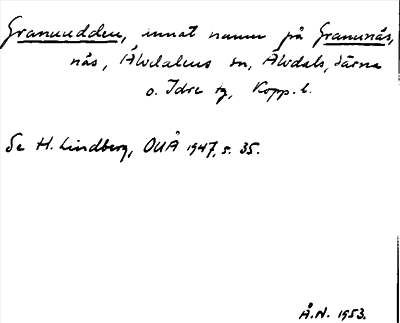 Granudden, annat namn på Granunäs,
näs, Älvdalens sn, Älvdals, Särna
o. Idre tg, Kopp. l.
Se H. Lindberg, OUÅ 1947, s. 35.
Å.N. 1953.